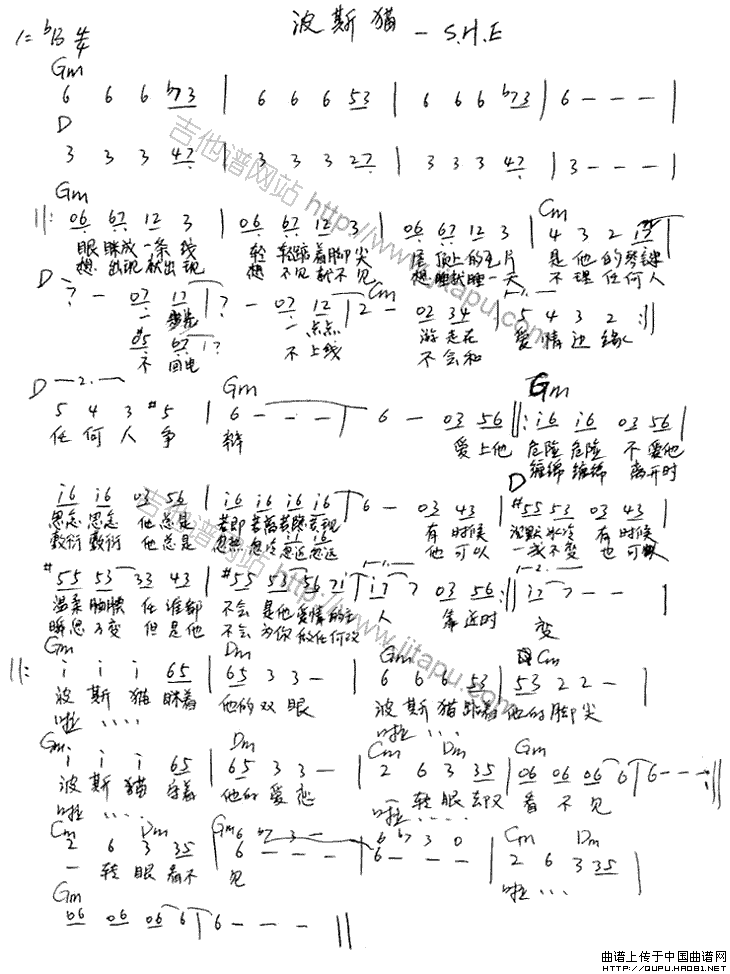 波斯猫 - S.H.E
1=ᵇB 4/4
Gm
6 6 6 ᵇ7 3 | 6 6 6 5 3 | 6 6 6 ᵇ7 3 | 6 - - - |
D
3 3 3 4 7 | 3 3 3 2 7 | 3 3 3 4 7 | 3 - - - |
Gm Cm
||: 06 67 12 3 | 06 67 12 3 | 06 67 12 3 | 4 3 2 17
眼眯成一条线 轻轻踮着脚尖 屋顶上的毛片 是他的琴键
想出现就出现 想不见就不见 想睡就睡一天 不理任何人
D Cm
7 - 07 17 | 7 - 07 12 | 2 - 02 34 | 5 4 3 2 :||
一步步 一点点 游走在 爱情边缘
#05 67 17
不回电 不上线 不会和
D -2.-
5 4 3 #5 | 6 - - - | 6 - 03 56 ||: i6 i6 03 56 |
Gm Gm
任何人争 辩 爱上他 危险危险 不爱他
缠绵缠绵 离开时
D
i6 i6 03 56 | i6 i6 i6 i6 | 6 - 03 43 | #55 53 03 43 |
思念思念 他总是 若即若离若隐若现 有时候 沉默冰冷 有时候
敷衍敷衍 他总是 忽热忽冷忽近忽远 他可以 一成不变 也可以
#55 53 33 43 | #55 53 56 7i | i7 7 03 56 :|| i7 7 - - |
温柔腼腆 任谁都 不会是他爱情的主 人 靠近时 变
瞬息万变 但是他 不会为你做任何改
Gm Dm Gm Cm
||: i i i 65 | 65 3 3 - | 6 6 6 53 | 53 2 2 - |
波斯猫眯着 他的双眼 波斯猫踮着 他的脚尖
啦.... 啦....
Gm Dm Cm Dm Gm
i i i 65 | 65 3 3 - | 2 6 3 35 | 06 06 06 6 | 6 - - - :||
波斯猫守着 他的爱恋 一转眼却又 看不见
啦.... 啦....
Cm Dm Gm Cm Dm
2 6 3 35 | 6 ᵇ7 3 - | 6 ᵇ7 3 0 | 2 6 3 35 |
6 - - - 6 - - -
一转眼看不 见 啦...
Gm
06 06 06 6 | 6 - - - ||
吉他谱网站 http://www.jitapu.com
吉他谱网站 http://www.jitapu.com
曲谱上传于中国曲谱网
HTTP://QUPU.HAO81.NET